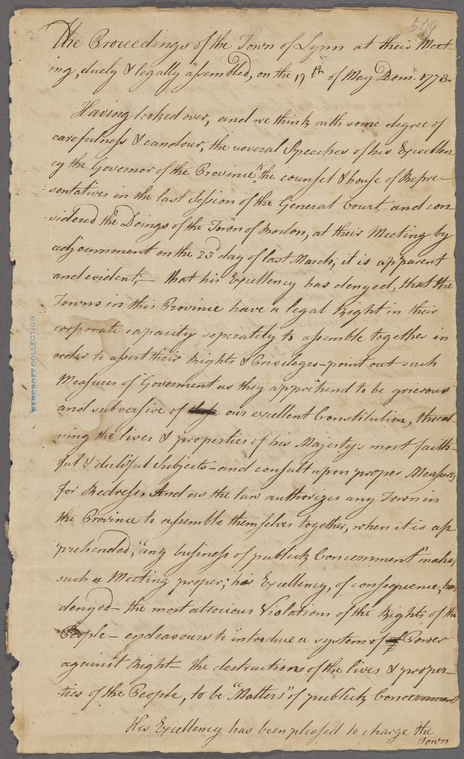 509
The Proceedings of the Town of Lynn at their Meet-
ing, duely & legally assembled, on the 19th of May Dom. 1773.
Having looked over, and we think with some degree of
carefulness & candour, the several Speeches of his Excellen
cy the Governor of the Province, the counsel & house of Repre-
sentatives in the last Session of the General Court, and con
sidered the Doings of the Town of Boston, at their Meeting by
adjournment on the 23d day of last March; it is apparent
and evident, — that his Excellency has denyed, that the
Towns in this Province have a legal Right in their
corporate capacity seperately to assemble together in
order to assert their Rights & Privileges — point out such
Measures of Government as they apprehend to be grievous
and subversive of our excellent Constitution, threat
ning the lives & properties of his Majesty's most faith-
ful & dutiful Subjects — and consult upon proper Measures,
for Redress. And as the law authorizes any Town in
the Province to assemble themselves together, when it is ap
prehended, "any business of publick Concernment" makes
such a Meeting proper; his Excellency, of consequence, has
denyed — the most attrocious Violations of the Rights of the
People — endeavours to introduce a system of Power
against Right — the destruction of the lives & proper-
ties of the People, to be "Matters" of publick Concernment
His Excellency has been pleased to charge the
Town
BANCROFT COLLECTION